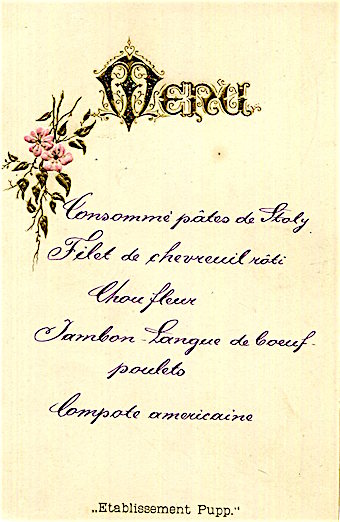 Menu
Consommé pâtes de Italy
Filet de chevreuil rôti
Chou fleur
Jambon - Langue de boeuf -
poulets
Compote americaine
„Etablissement Pupp."